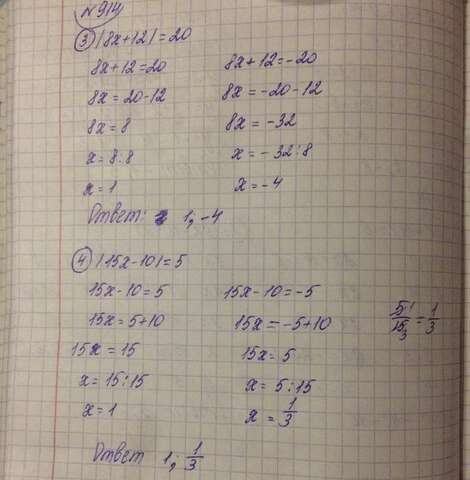 №914
③ |8x+12|=20
8x+12=20 8x+12=-20
8x=20-12 8x=-20-12
8x=8 8x=-32
x=8:8 x=-32:8
x=1 x=-4
Ответ: 1, -4
④ |15x-10|=5
15x-10=5 15x-10=-5 5¹/15₃=1/3
15x=5+10 15x=-5+10
15x=15 15x=5
x=15:15 x=5:15
x=1 x=1/3
Ответ 1; 1/3